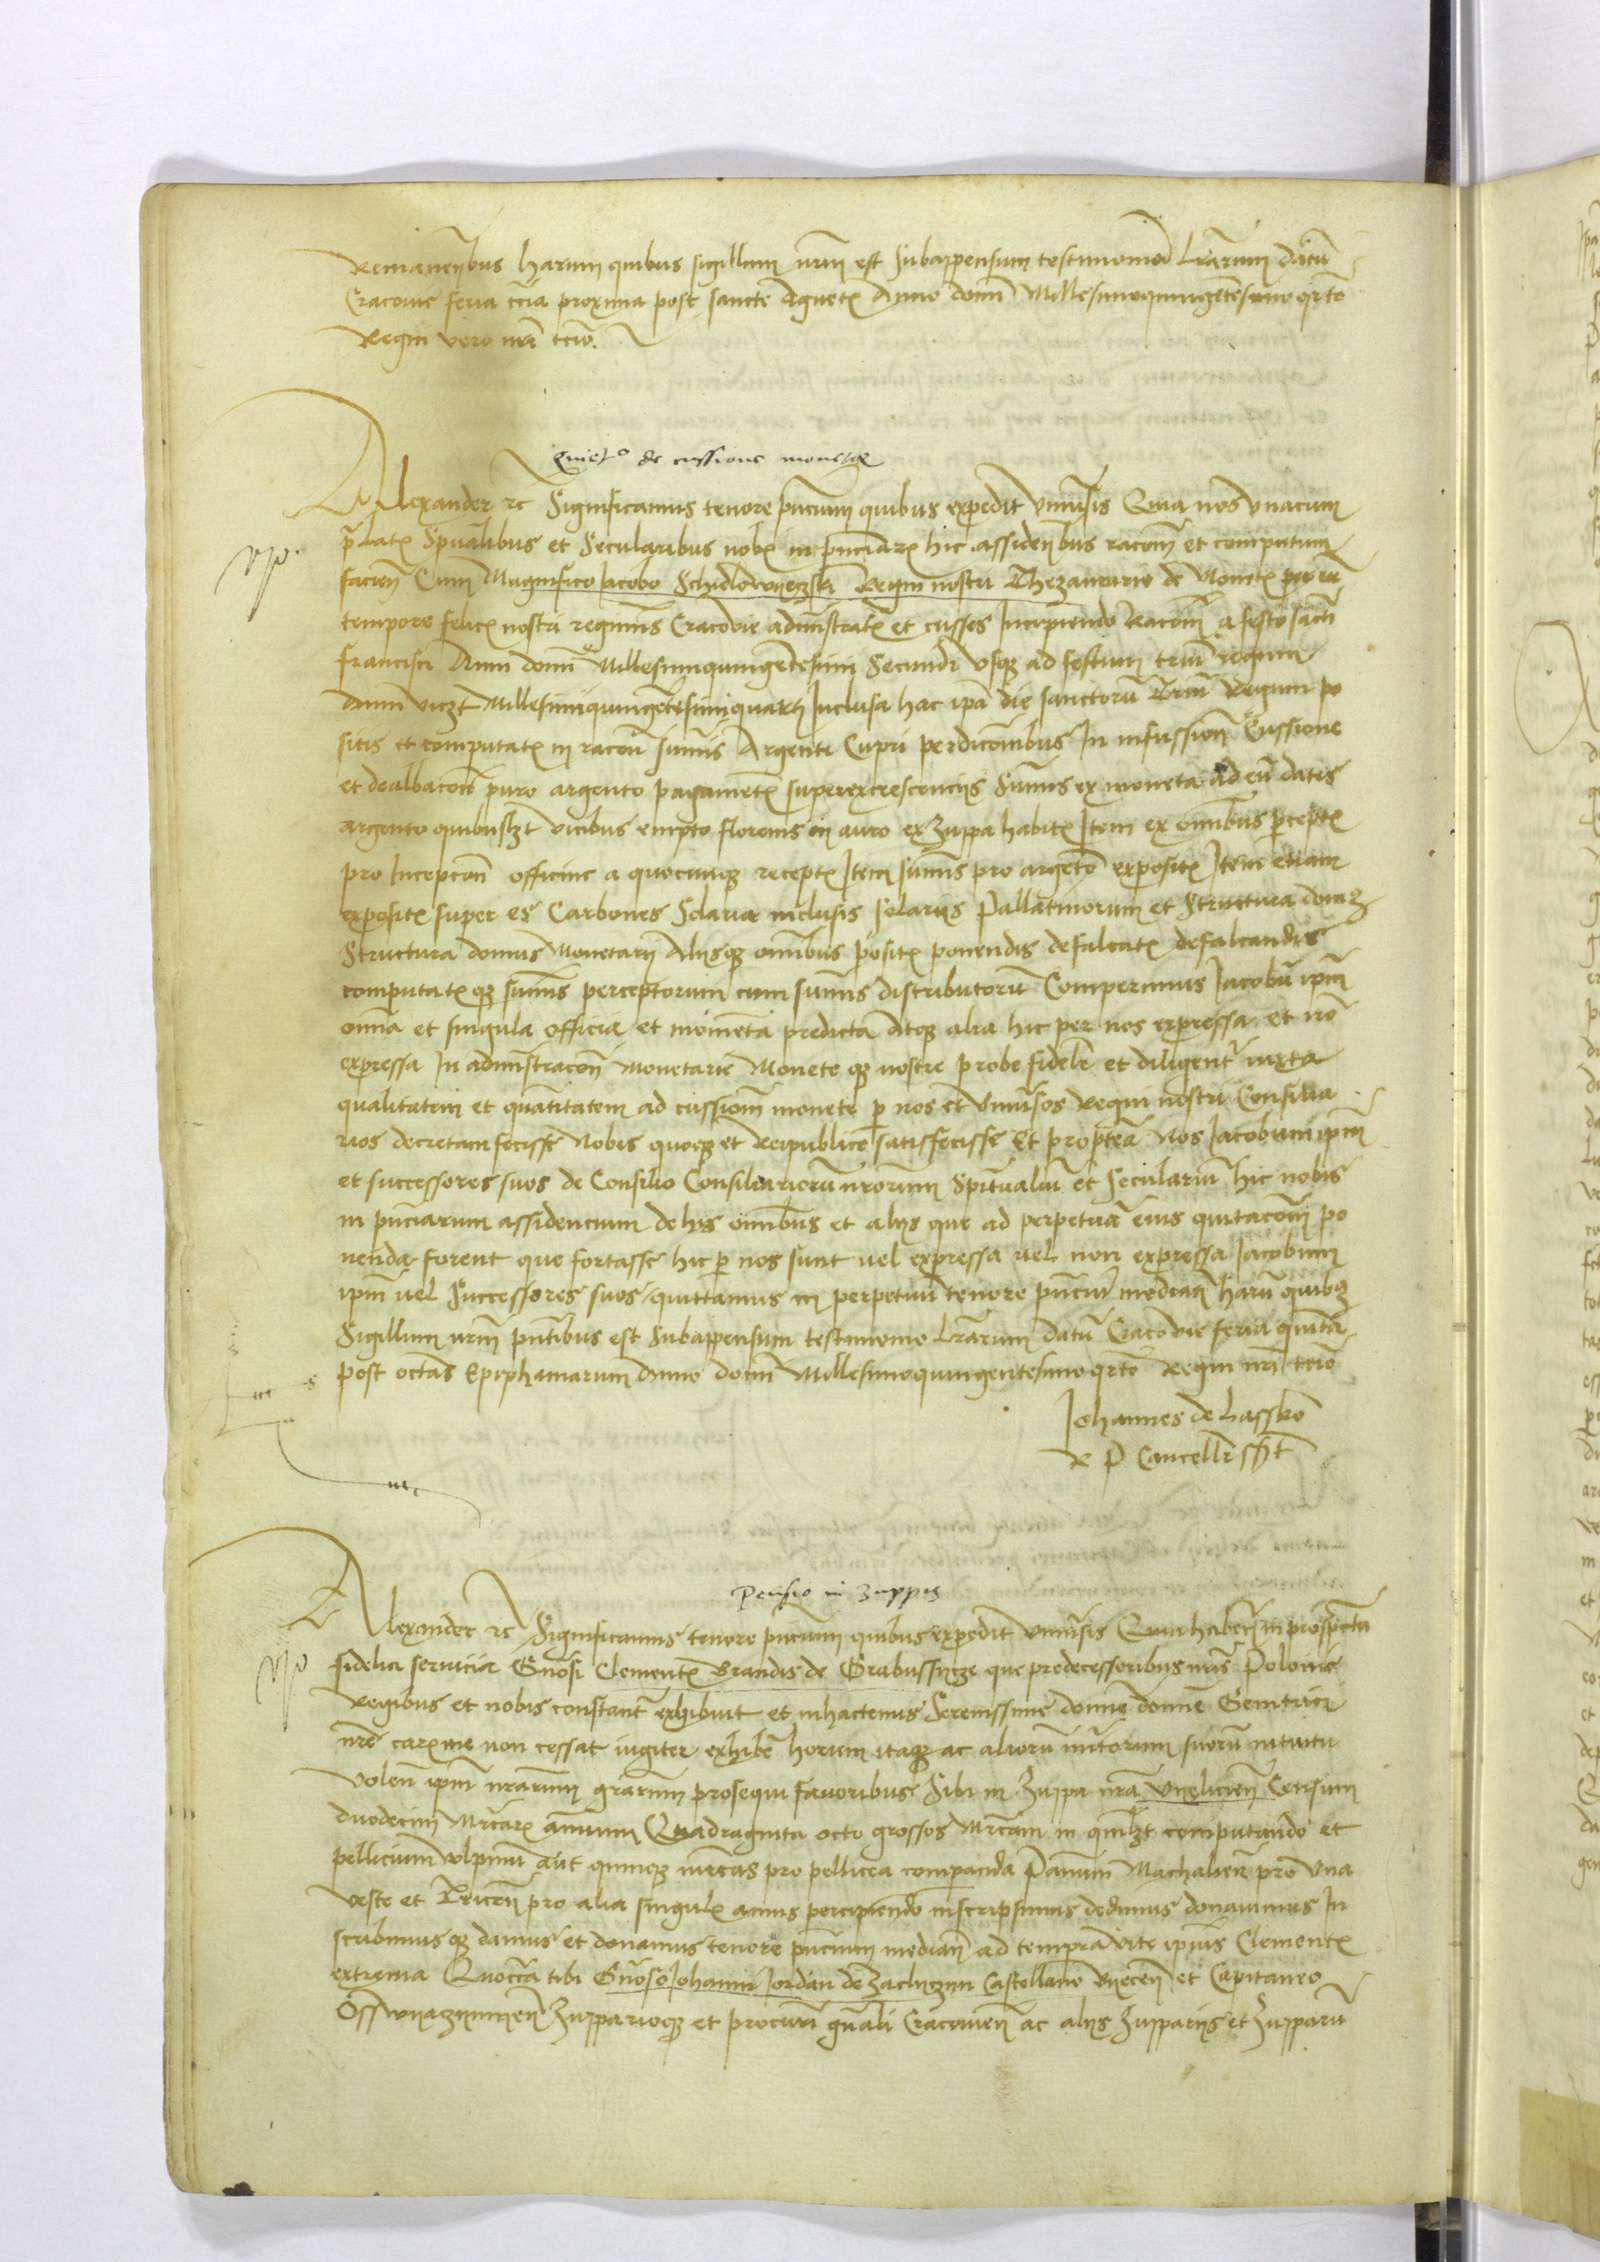 Remanentibus harum quibus sigillum nrm est subappensum testimonio Lrarum datum
Cracovie feria tcia proxima post sancte Agnetis Anno domi Millesimoquingentesimo qrto
Regni vero nri tcio.
Quiet° de cussione monetae
Alexander rc Significamus tenore pncium quibus expedit vniversis Quia nos vnacum
prelatis Spualibus et Secularibus nobis in prnciarum hic assidentibus racom et computum
facien Cum Magnifico Jacobo Schidlowyeczski Regni nostri Thezaurario de Monetis per eu
tempore felicis nostri regiminis Cracovie administratis et cussis Incipiendo Racom a festo sacti
Francisci Anni domi Millesimiquingentesimi Secundi vsque ad festum triu regum
Anni viczt Millesimiquingentesimiquarti Inclusa hac ipa die sanctorum Trium Regum po
sitis et computatis in racom sumis Argenti Cupri perdicombus In infusione Cussione
et dealbacom puro argento pagamentis superexcrescenciis Sumis ex moneta ad eu datis
argento quibuslzt vicibus empto florenis in auro ex Zuppa habitis Item ex omibus perceptis
pro Incepcom officine a quocunque receptis Item sumis pro argento expositis Item etiam
expositis super es Carbones Selaria inclusis solariis Pallatinorum et Structura domus
Structura domus Monetarii Aliisque omibus positis ponendis defalcatis defalcandis
computatisque sumis perceptorum cum sumis distributoru Comperimus Jacobu ipm
omia et singula officia et momenta predicta Atque alia hic per nos expressa et no
expressa In administracom Monetarie Moneteque nostre probe fidelr et diligentr iuxta
qualitatem et quantitatem ad cussiom monete p nos et vniversos Regni nostri Consilia
rios decretam fecisse Nobis quoque et Reipublice satisfecisse Et proptea Nos Jacobum ipm
et successores suos de Consilio Consiliarioru nrorum Spitualiu et Seculariu hic nobis
in pnciarum assidencium de his omibus et aliis que ad perpetua eius quitacom po
nenda forent que fortasse hic p nos sunt vel expressa vel non expressa Jacobum
ipm vel Successores suos quittamus in perpetuu tenore pnciu median haru quibus
Sigillum nrm pntibus est Subappensum testimonio Lrarum datu Cracovie feria quinta
post octas Epiphaniarum Anno domi Millesimoquingentesimo qrto Regni nri tcio
Johannes de Lassko
R P Cancells sst
Pensio in Zuppis
Alexander rc Significamus tenore pncium quibus expedit vniversis Quia haben in prospectu
fidelia servicia Gnosi Clementis Brandis de Grabussycze que predecessoribus nris Polonie
Regibus et nobis constantr exhibuit et inhactenus Serenissime domie domie Genitrici
nre carissime non cessat iugiter exhibe horum itaque ac alioru meritorum suoru intuitu
Volen ipm nrarum grarum prosequi favoribus Sibi in Zuppa nra Vyelicien Censum
duodecim Mrcarum annuum Quadraginta octo grossos Mrcam in qmlzt computando et
pellicium vulpinu aut quinque mrcas pro pellicea comparanda Pannum Machalien pro vna
veste et Tricen pro alia singulis annis percipiendo inscripsimus dedimus donavimus In
scribimusque damus et donamus tenore pncium median ad tempora vite ipius Clementis
extrema Quocca tibi Gnoso Johanni Jordan de Zaclyczyn Castellano Vyecen et Capitaneo
Osswyaczymyen Zupparioque et procuri gnali Cracovien ac aliis Zuppariis et Zuppariu